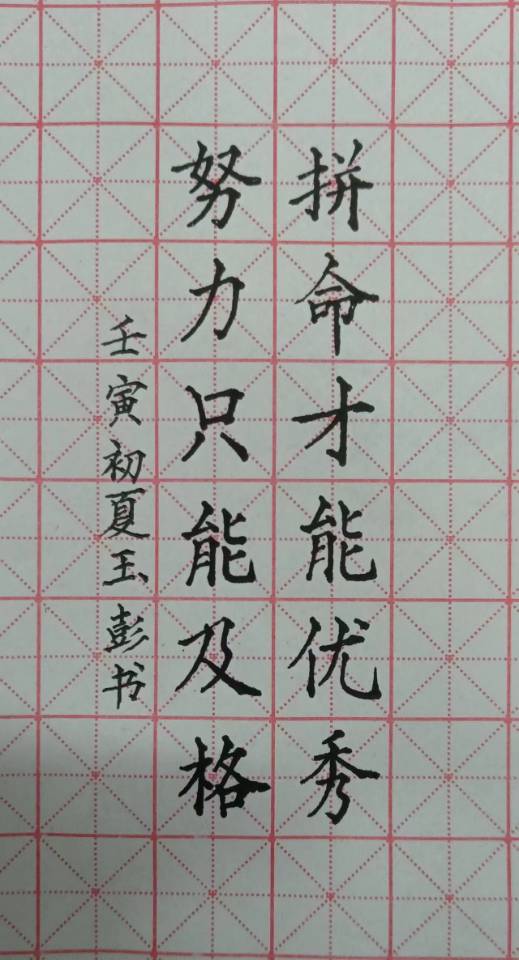 拼命才能优秀
努力只能及格
壬寅初夏玉彭书